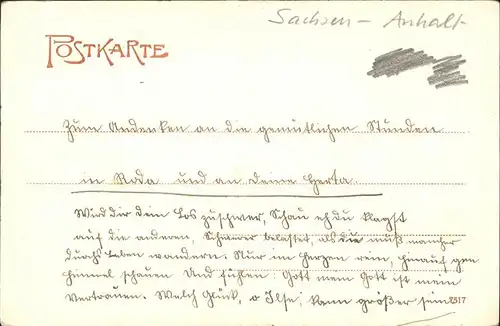 Sachsen - Anhalt
POSTKARTE
Zum Andenken an die gemütlichen Stunden
in Roda und an Deine Herta.
Wird dir dein Los zu schwer, Schau eh du klagst
auf die anderen, Schwerer belastet, als du muß mancher
durchs Leben wandern. Nur im Herzen rein, hinauf gen
Himmel schauen Und fühlen: Gott mein Gott ist mein
Vertrauen. Welch Glück, o Ilse, kann größer sein.
2517